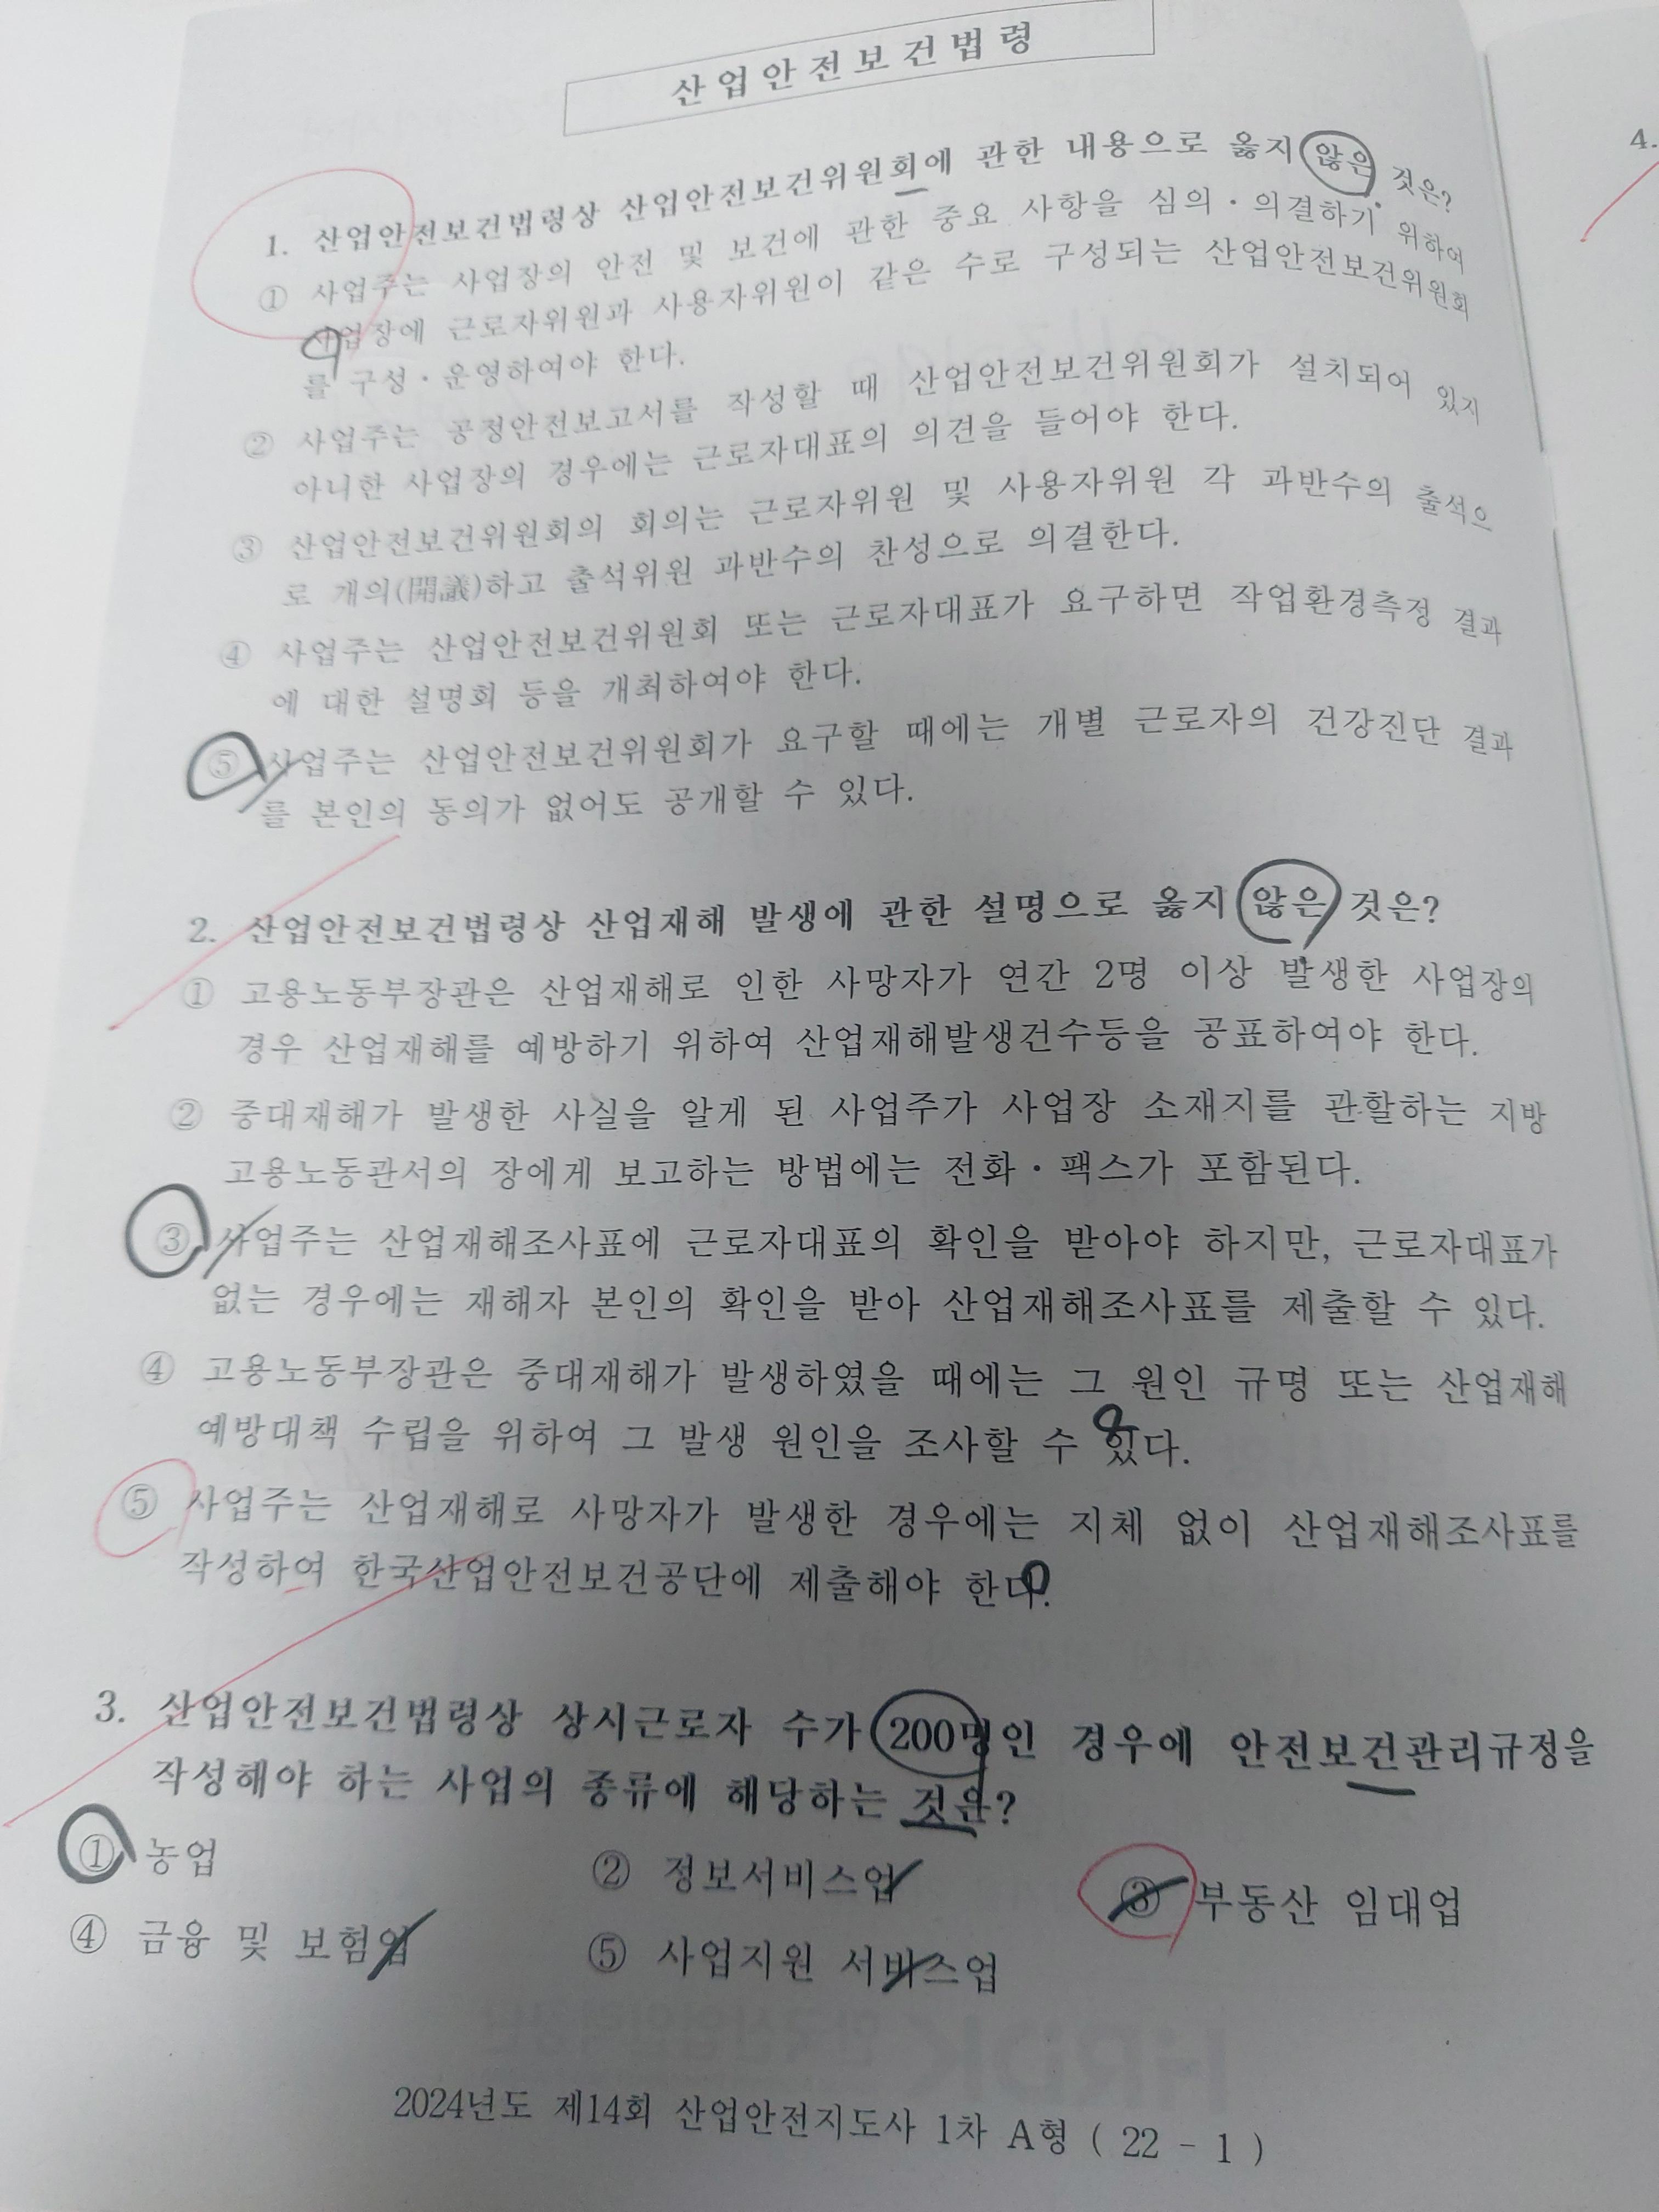 산업안전보건법령
1. 산업안전보건법령상 산업안전보건위원회에 관한 내용으로 옳지 않은 것은?
① 사업주는 사업장의 안전 및 보건에 관한 중요 사항을 심의·의결하기 위하여
사업장에 근로자위원과 사용자위원이 같은 수로 구성되는 산업안전보건위원회
를 구성·운영하여야 한다.
② 사업주는 공정안전보고서를 작성할 때 산업안전보건위원회가 설치되어 있지
아니한 사업장의 경우에는 근로자대표의 의견을 들어야 한다.
③ 산업안전보건위원회의 회의는 근로자위원 및 사용자위원 각 과반수의 출석으
로 개의(開議)하고 출석위원 과반수의 찬성으로 의결한다.
④ 사업주는 산업안전보건위원회 또는 근로자대표가 요구하면 작업환경측정 결과
에 대한 설명회 등을 개최하여야 한다.
⑤ 사업주는 산업안전보건위원회가 요구할 때에는 개별 근로자의 건강진단 결과
를 본인의 동의가 없어도 공개할 수 있다.
2. 산업안전보건법령상 산업재해 발생에 관한 설명으로 옳지 않은 것은?
① 고용노동부장관은 산업재해로 인한 사망자가 연간 2명 이상 발생한 사업장의
경우 산업재해를 예방하기 위하여 산업재해발생건수등을 공표하여야 한다.
② 중대재해가 발생한 사실을 알게 된 사업주가 사업장 소재지를 관할하는 지방
고용노동관서의 장에게 보고하는 방법에는 전화·팩스가 포함된다.
③ 사업주는 산업재해조사표에 근로자대표의 확인을 받아야 하지만, 근로자대표가
없는 경우에는 재해자 본인의 확인을 받아 산업재해조사표를 제출할 수 있다.
④ 고용노동부장관은 중대재해가 발생하였을 때에는 그 원인 규명 또는 산업재해
예방대책 수립을 위하여 그 발생 원인을 조사할 수 있다.
⑤ 사업주는 산업재해로 사망자가 발생한 경우에는 지체 없이 산업재해조사표를
작성하여 한국산업안전보건공단에 제출해야 한다.
3. 산업안전보건법령상 상시근로자 수가 200명인 경우에 안전보건관리규정을
작성해야 하는 사업의 종류에 해당하는 것은?
① 농업 ② 정보서비스업 ③ 부동산 임대업
④ 금융 및 보험업 ⑤ 사업지원 서비스업
2024년도 제14회 산업안전지도사 1차 A형 ( 22 - 1 )
4.